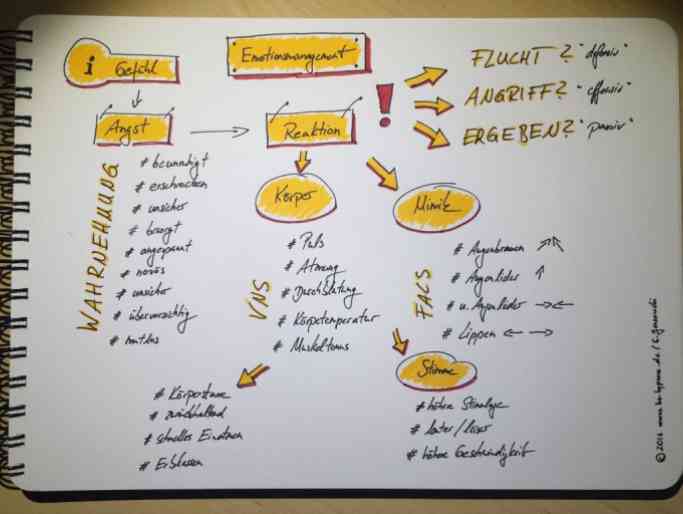 i Gefühl
Emotionsmanagement
FLUCHT? "defensiv"
ANGRIFF? "offensiv"
ERGEBEN? "passiv"
Angst
Reaktion
!
WAHRNEHMUNG
# beunruhigt
# erschrocken
# unsicher
# besorgt
# angespannt
# nervös
# unsicher
# übervorsichtig
# mutlos
Körper
VNS
# Puls
# Atmung
# Durchblutung
# Körpertemperatur
# Muskeltonus
Mimik
FACS
# Augenbrauen
# Augenlider ↑
# u. Augenlider → ←
# Lippen ← →
# Körperstarre
# zurückhaltend
# schnelles Einatmen
# Erblassen
Stimme
# höhere Stimmlage
# lauter/leiser
# höhere Geschwindigkeit
© 2016